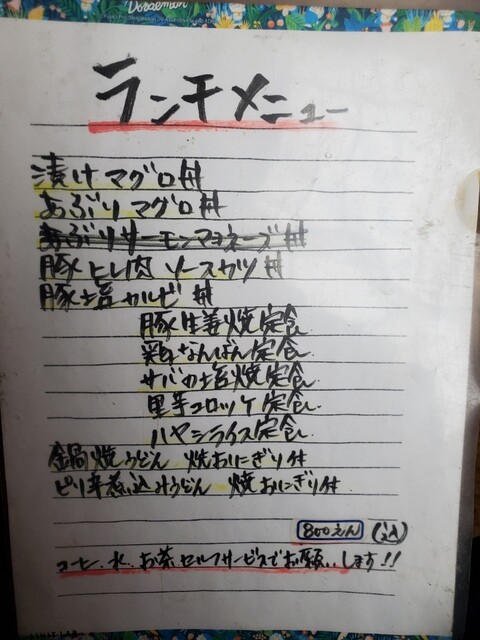 Doraemon
ランチメニュー
漬けマグロ丼
あぶりマグロ丼
あぶりサーモンマヨネーズ丼
豚ヒレ肉ソースカツ丼
豚塩カルビ丼
豚生姜焼定食
なんばん定食
サバの塩焼定食
里芋コロッケ定食
ハヤシライス定食
鍋焼うどん 焼おにぎり付
ピリ辛煮込みうどん 焼おにぎり付
800えん (込)
コーヒー、水、お茶、セルフサービスでお願いします!!